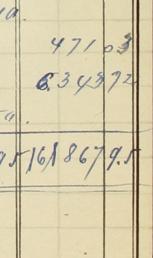 a.
471 03
6.343 72
"
95 161 867 95